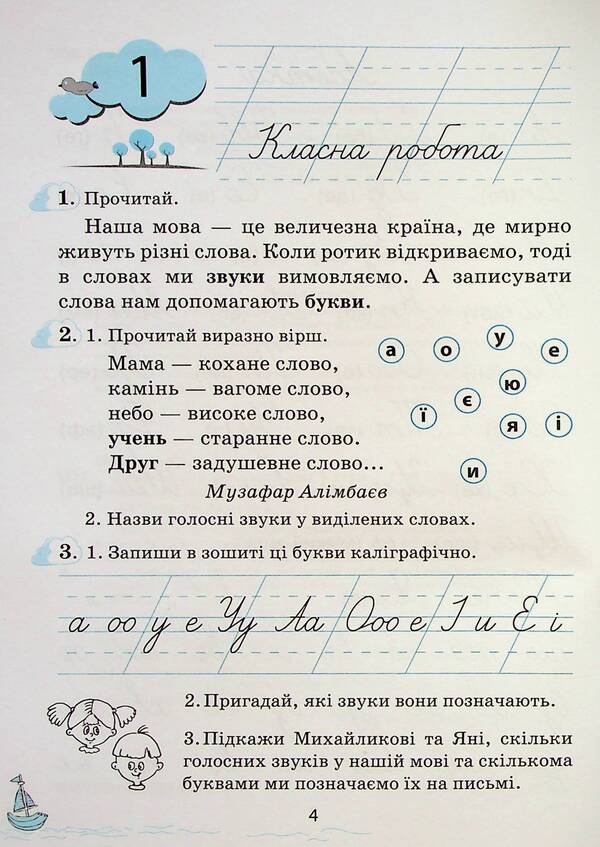 1
Класна робота
1. Прочитай.
Наша мова — це величезна країна, де мирно
живуть різні слова. Коли ротик відкриваємо, тоді
в словах ми звуки вимовляємо. А записувати
слова нам допомагають букви.
2. 1. Прочитай виразно вірш.
Мама — кохане слово,
камінь — вагоме слово,
небо — високе слово,
учень — старанне слово.
Друг — задушевне слово...
Музафар Алімбаєв
а о у е
ї є ю я і
и
2. Назви голосні звуки у виділених словах.
3. 1. Запиши в зошиті ці букви каліграфічно.
а оо у е Уу Аа Ооо е І и Е і
2. Пригадай, які звуки вони позначають.
3. Підкажи Михайликові та Яні, скільки
голосних звуків у нашій мові та скількома
буквами ми позначаємо їх на письмі.
4